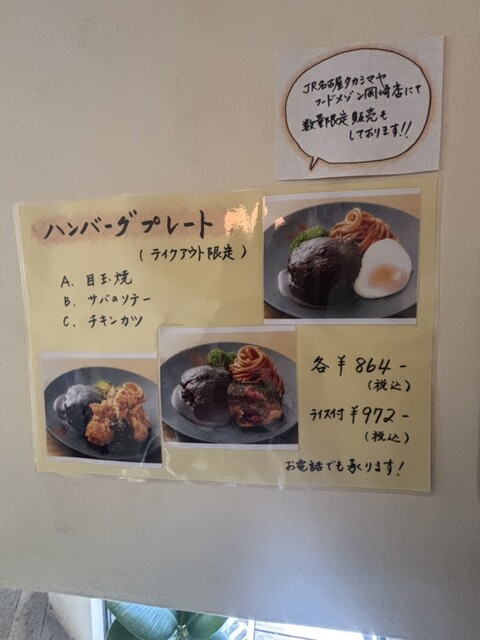 JR名古屋タカシマヤ
フードメゾン岡崎店にて
数量限定販売も
しております!!
ハンバーグプレート
(テイクアウト限定)
A. 目玉焼
B. サバのソテー
C. チキンカツ
各¥864-
(税込)
ライス付¥972-
(税込)
お電話でも承ります!